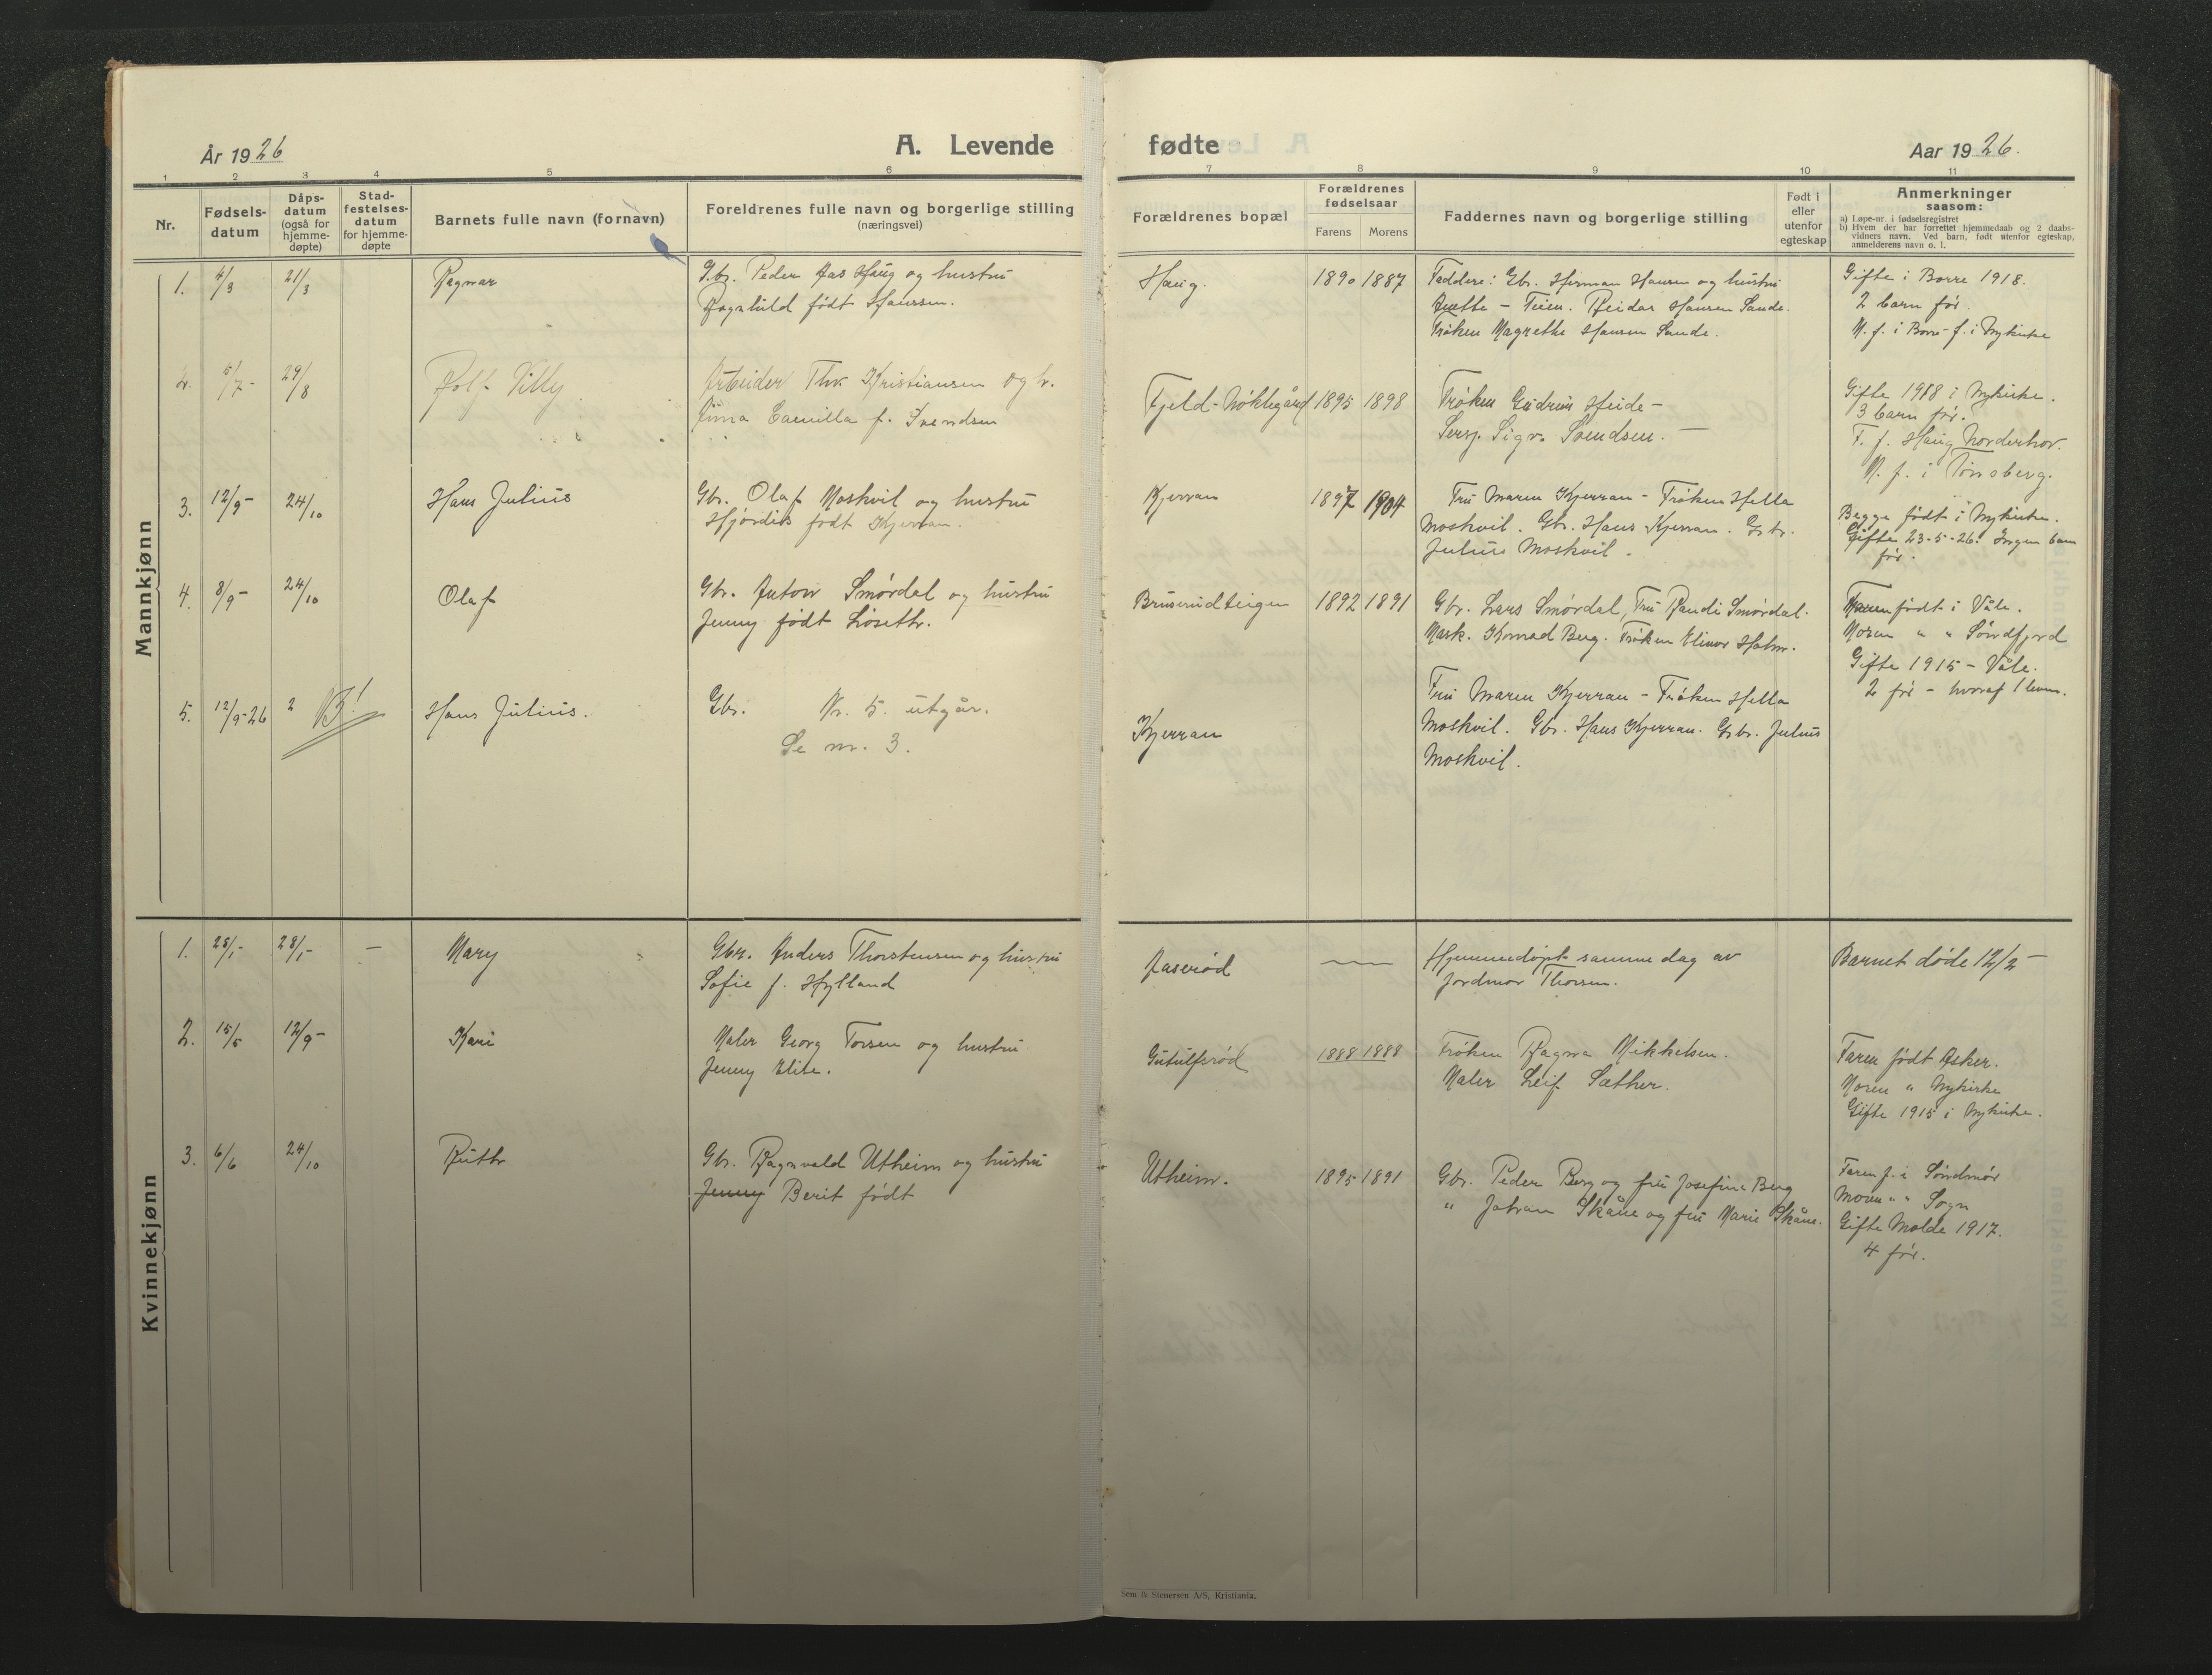 År 1926
A. Levende
fødte
Aar 1926.
1 2 3 4 5 6 7 8 9 10 11
Nr.
Fødsels-
datum
Dåps-
datum
(også for
hjemme-
døpte)
Stad-
festelses-
datum
for hjemme-
døpte
Barnets fulle navn (fornavn)
Foreldrenes fulle navn og borgerlige stilling
(næringsvei)
Forældrenes bopæl
Forældrenes
fødselsaar
Farens Morens
Faddernes navn og borgerlige stilling
Født i
eller
utenfor
egteskap
Anmerkninger
saasom:
a) Løpe-nr. i fødselsregistret
b) Hvem der har forrettet hjemmedaab og 2 daabs-
vidners navn. Ved barn, født utenfor egteskap,
anmelderens navn o. l.
Mannkjønn
1. 4/3 21/3 Ragnar
Gbr. Peder Aas Haug og hustru
Ragnhild født Hanssen.
Haug. 1890 1887
Faddere: Gbr. Herman Hansen og hustru
Anette - Teien. Reidar Hansen Sande.
Frøken Magrethe Hansen Sande.
Gifte i Borre 1918.
2 barn før.
M. f. i Borre - f. i Nykirke
2. 5/7- 29/8 Rolf Villy.
Arbeider Thv. Kristiansen og h.
Anna Camilla f. Svendsen
Fjeld-Nøklegård 1895 1898
Frøken Gudrun Heide -
Sersj. Sigv. Svendsen. -
Gifte 1918 i Nykirke.
3 barn før.
F. f. Haug Norderhov.
M. f. i Tønsberg.
3. 12/9- 24/10 Hans Julius
Gbr. Olaf Moskvil og hustru
Hjørdis født Kjerran.
Kjerran 1897 1904
Fru Maren Kjerran - Frøken Hella
Moskvil. Gbr. Hans Kjerran. Gbr.
Julius Moskvil.
Begge født i Nykirke.
Gifte 23-5-26. Ingen barn
før.
4. 8/9- 24/10 Olaf
Gbr. Anton Smørdal og hustru
Jenny født Løseth.
Bruserudteigen 1892 1891
Gbr. Lars Smørdal, Fru Randi Smørdal.
Mask. Konrad Berg. Frøken Elinor Holm.
Faren født i Våle.
Moren " " Søndfjord
Gifte 1915 - Våle.
2 før - hvoraf 1 leven.
5. 12/9-26 2 NB! Hans Julius.
Gbr. Nr. 5. utgår.
Se nr. 3.
Kjerran
Fru Maren Kjerran - Frøken Hella
Moskvil. Gbr. Hans Kjerran. Gbr. Julius
Moskvil.
Kvinnekjønn
1. 28/1- 28/1- - Mary
Gbr. Anders Thorstensen og hustru
Sofie f. Hylland
Aaserød
Hjemmedøpt samme dag av
Jordmor Thorsen.
Barnet døde 12/2 -
2. 15/5 12/9- Kari
Maler Georg Torsen og hustru
Jenny Elise.
Gutulfsrød 1888 1888
Frøken Ragna Mikkelsen.
Maler Leif Sæther.
Faren født Asker.
Moren " Nykirke
Gifte 1915 i Nykirke.
3. 6/6 24/10 Ruth
Gbr. Ragnvald Utheim og hustru
Jenny Berit født
Utheim. 1895 1891
Gbr. Peder Berg og fru Josefine Berg
" Johan Skåne og fru Marie Skåne.
Faren f. i Søndmør
Moren " " Sogn
Gifte Molde 1917.
4 før.
Sem & Stenersen A/S, Kristiania.